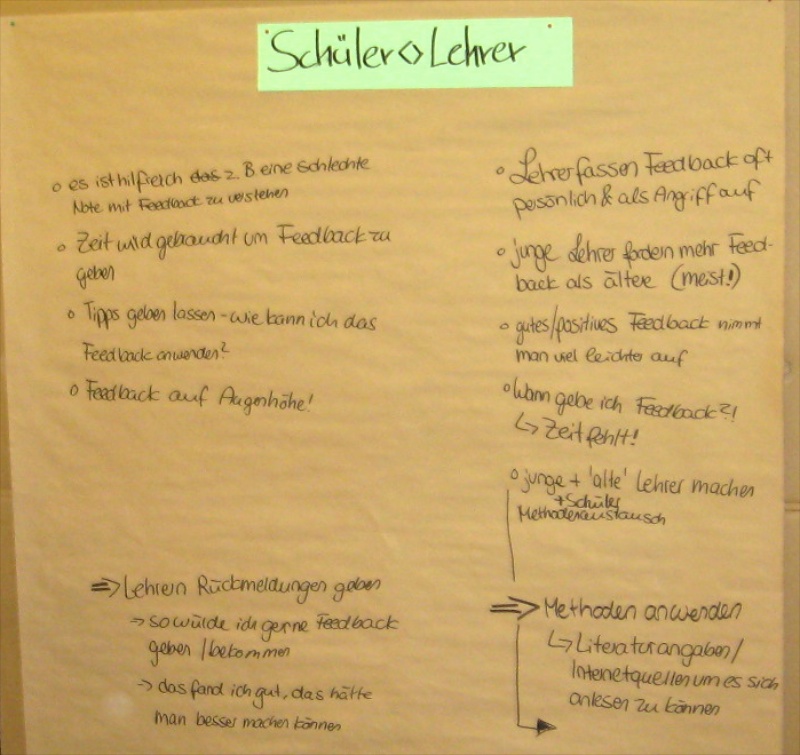 Schüler <> Lehrer
o es ist hilfreich das z.B eine schlechte
Note mit Feedback zu verstehen
o Zeit wird gebraucht um Feedback zu
geben
o Tipps geben lassen - wie kann ich das
Feedback anwenden?
o Feedback auf Augenhöhe!
=> Lehrern Rückmeldungen geben
-> so würde ich gerne Feedback
geben / bekommen
-> das fand ich gut, das hätte
man besser machen können
o Lehrer fassen Feedback oft
persönlich & als Angriff auf
o junge Lehrer fordern mehr Feed-
back als ältere (meist!)
o gutes/positives Feedback nimmt
man viel leichter auf
o Wann gebe ich Feedback?!
↳ Zeit fehlt!
o junge + 'alte' Lehrer machen
+ Schüler
Methodenaustausch
=> Methoden anwenden
↳ Literaturangaben/
Internetquellen um es sich
anlesen zu können